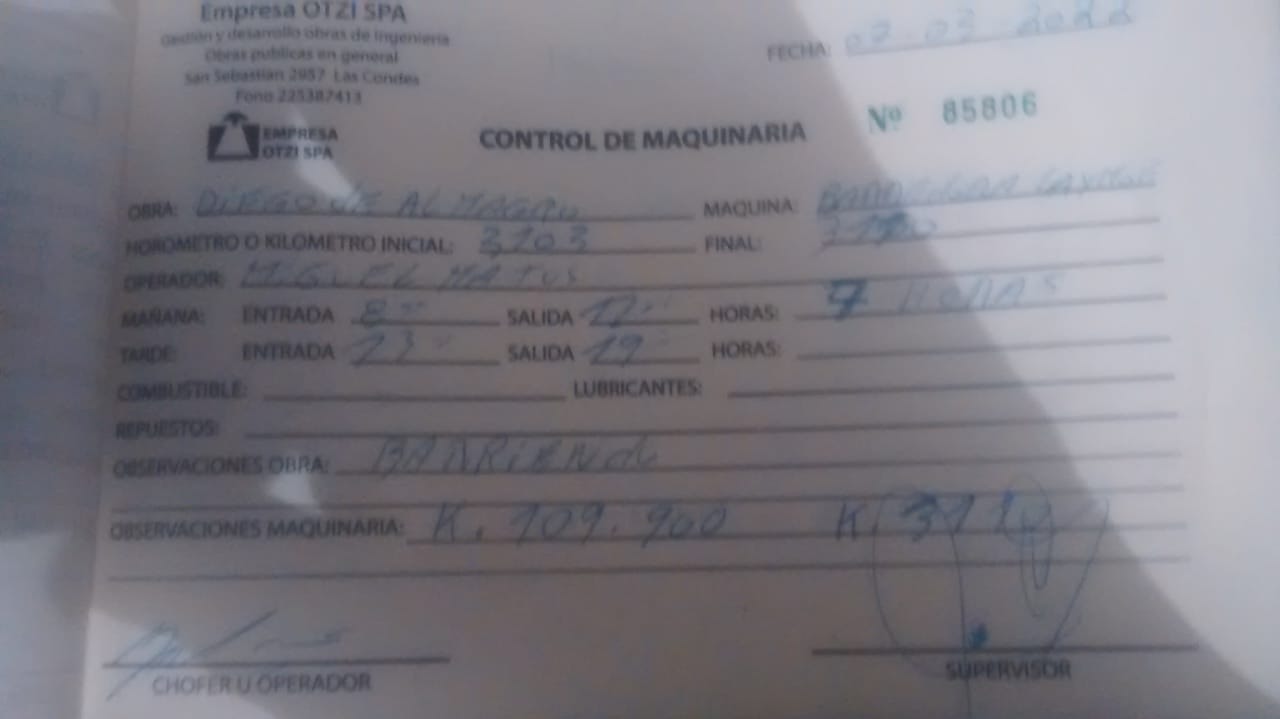 Empresa OTZI SPA
Gestión y desarrollo obras de Ingenieria
Obras publicas en general
San Sebastian 2957 Las Condes
Fono 225387413
FECHA: 07-03-2022
EMPRESA OTZI SPA
CONTROL DE MAQUINARIA
Nº 85806
OBRA: DIEGO DE ALMAGRO MAQUINA:
HOROMETRO O KILOMETRO INICIAL: 3103 FINAL:
OPERADOR: MIGUEL MATUS
MAÑANA: ENTRADA 8 SALIDA 12 HORAS: 7 HORAS
TARDE: ENTRADA 13 SALIDA 19 HORAS:
COMBUSTIBLE: LUBRICANTES:
REPUESTOS:
OBSERVACIONES OBRA: BARRIENdo
OBSERVACIONES MAQUINARIA: K. 109.900 K
CHOFER U OPERADOR
SUPERVISOR